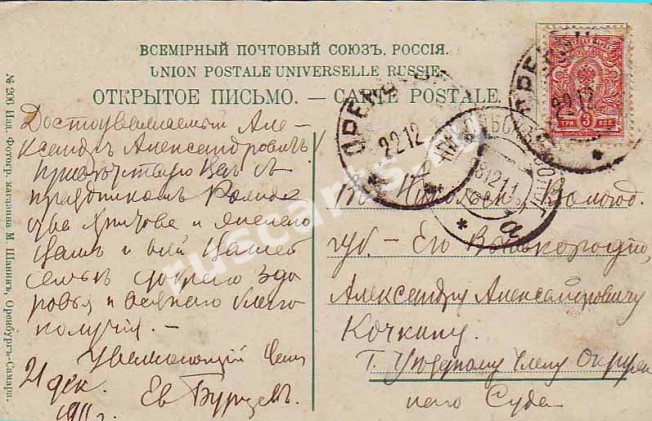 ВСЕМІРНЫЙ ПОЧТОВЫЙ СОЮЗЪ. РОССІЯ.
UNION POSTALE UNIVERSELLE RUSSIE.
ОТКРЫТОЕ ПИСЬМО. — CARTE POSTALE.
№ 206 Изд. Фотогр. магазина М. Шлапинъ, Оренбургъ-Самара.
Достоуважаемый Але-
ксандръ Александровичъ!
Привѣтствую Васъ съ
праздникомъ Рожде
ства Христова и желаю
Вамъ и всей Вашей
семьѣ добраго здо
ровья и всякаго благо
получія. —
Уважающій Васъ
21 дек.
1911 г.
Ев
ОРЕНБУРГ
22 12
22 12
12 11
а
3 КОП
Вологод.
губ. — Его Высокородію,
Александру Александровичу
Кочкину.
Г. Уѣздному Члену Окруж
наго Суда
ruscards.ru